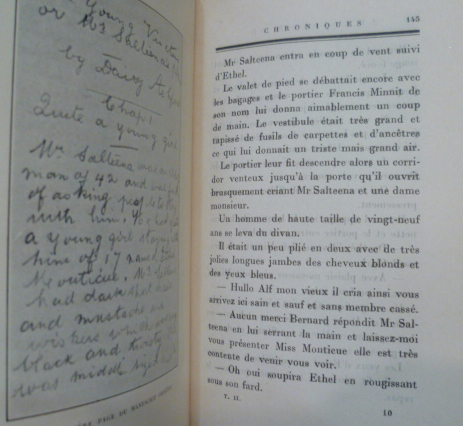 Young
or Mr Salteena's
by Daisy
Chap. 1
Quite a young
Mr Salteena was an
man of 42 and was
of asking people to
with him. He had
a young girl staying
him of 17 named
Monticue. Mr
had dark
and mustache
black and
was middle
PAGE DU
CHRONIQUES 145
Mr Salteena entra en coup de vent suivi
d'Ethel.
Le valet de pied se débattait encore avec
les bagages et le portier Francis Minnit de
son nom lui donna aimablement un coup
de main. Le vestibule était très grand et
tapissé de fusils de carpettes et d'ancêtres
ce qui lui donnait un triste mais grand air.
Le portier leur fit descendre alors un corri-
dor venteux jusqu'à la porte qu'il ouvrit
brusquement criant Mr Salteena et une dame
monsieur.
Un homme de haute taille de vingt-neuf
ans se leva du divan.
Il était un peu plié en deux avec de très
jolies longues jambes des cheveux blonds et
des yeux bleus.
— Hullo Alf mon vieux il cria ainsi vous
arrivez ici sain et sauf et sans membre cassé.
— Aucun merci Bernard répondit Mr Sal-
teena en lui serrant la main et laissez-moi
vous présenter Miss Monticue elle est très
contente de venir vous voir.
— Oh oui soupira Ethel en rougissant
sous son fard.
T. II. 10